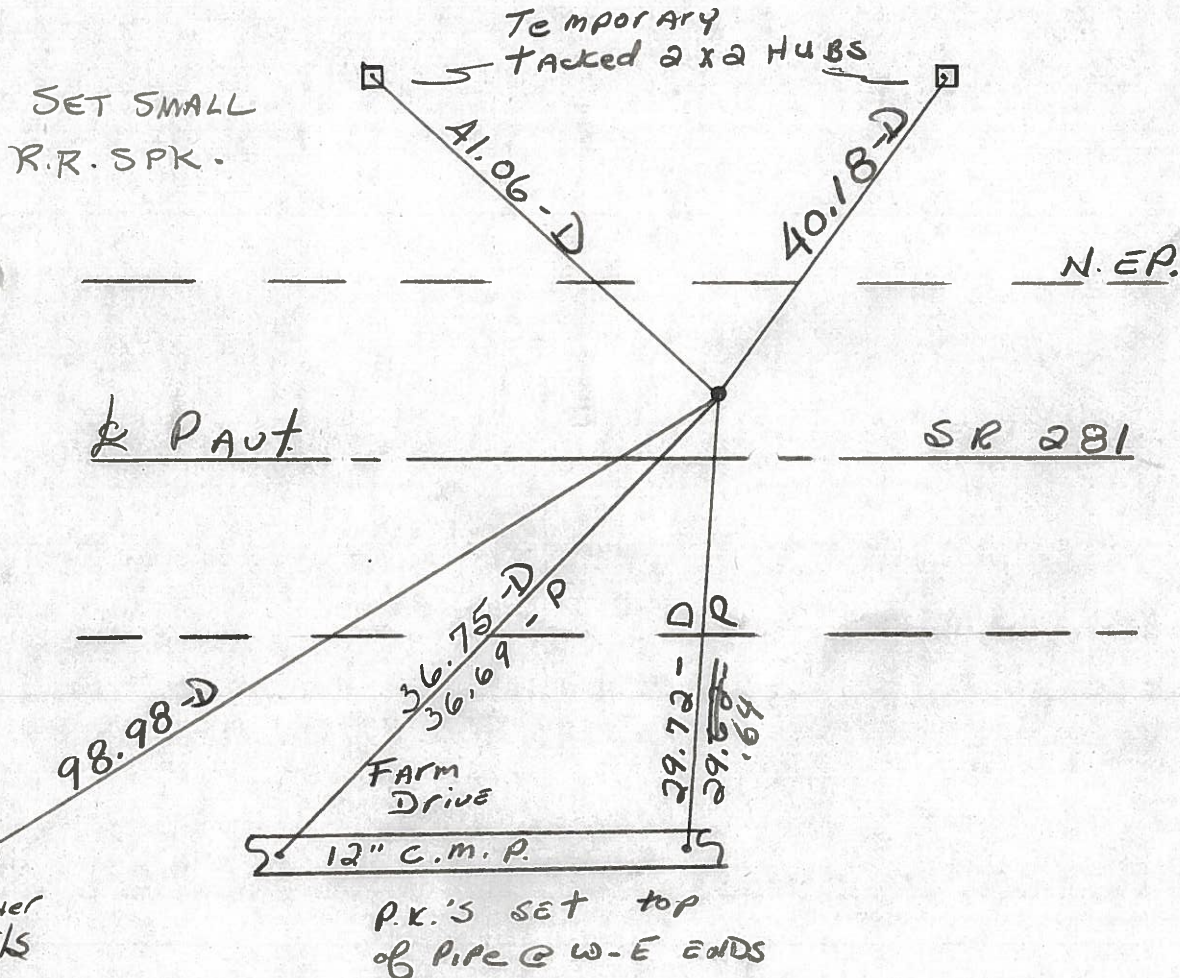 Temporary
tacked 2 x 2 HUBS
SET SMALL
R.R. SPK.
41.06 - D
40.18 - D
N. EP.
℄ PAUt.
SR 281
36.75 - D
36.69 - P
29.72 - D
.64 P
98.98 - D
FArm
Drive
12" C.M.P.
P.K.'s SET top
of PIPE @ W-E ENDS